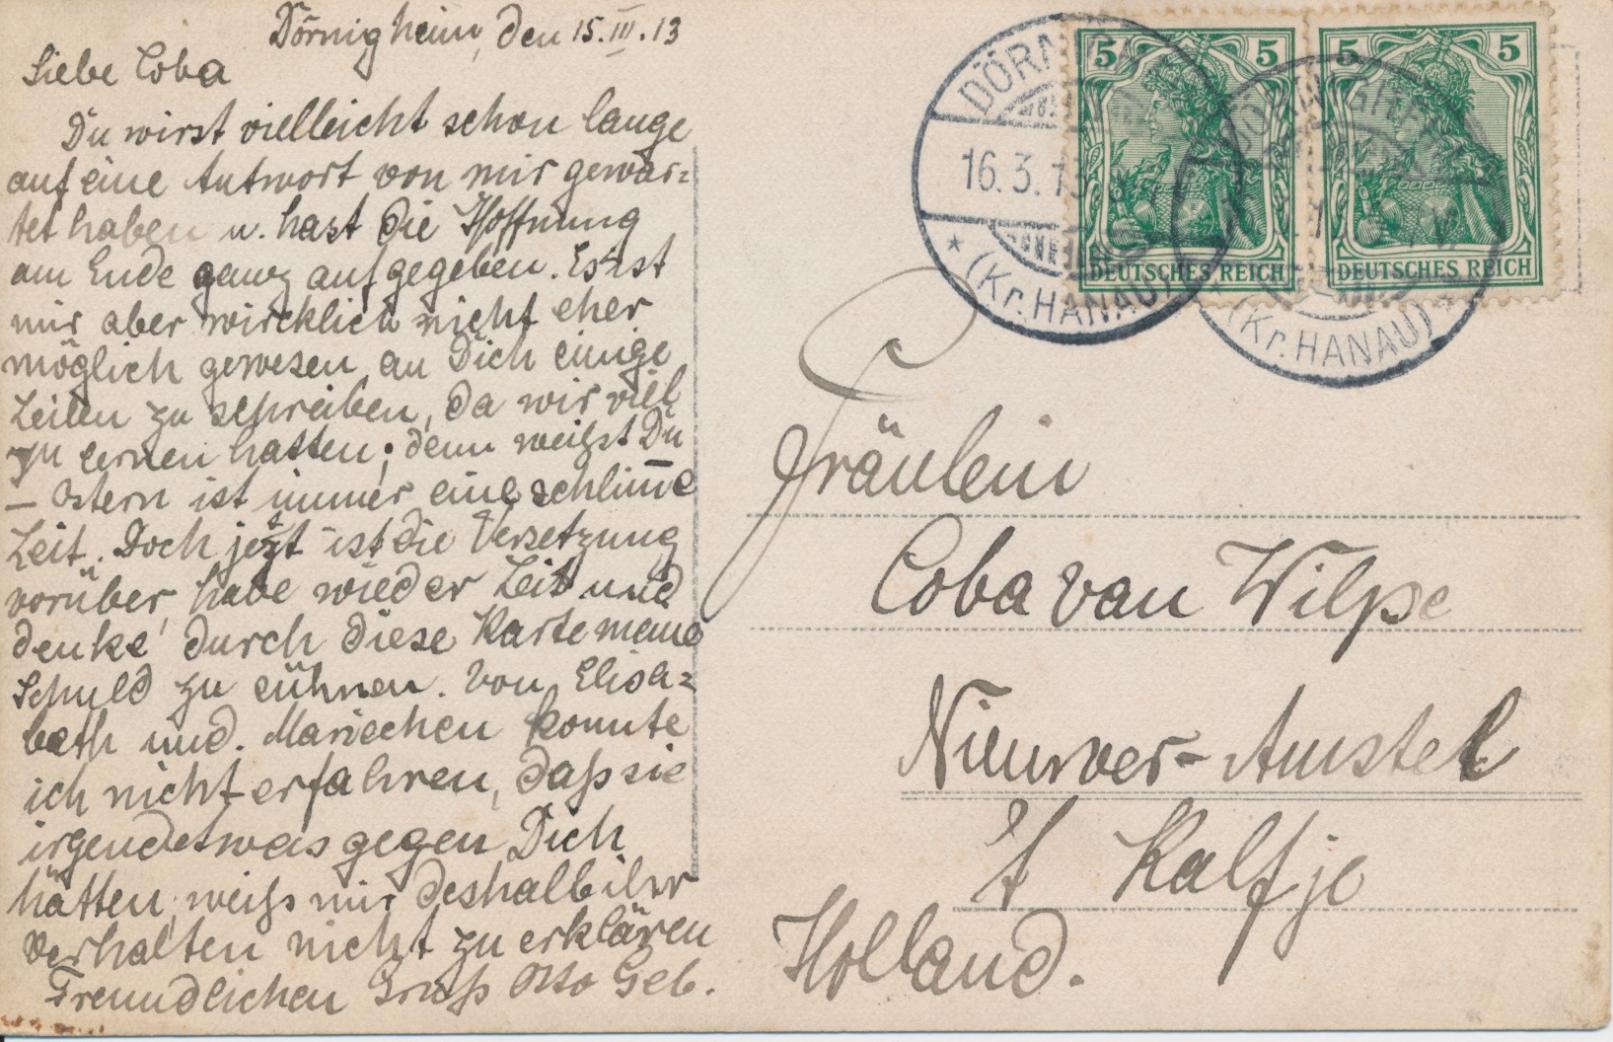 Dörnigheim, den 15.III.13
Liebe Coba
Du wirst vielleicht schon lange
auf eine Antwort von mir gewar=
tet haben u. hast die Hoffnung
am Ende ganz aufgegeben. Es ist
mir aber wircklich nicht eher
möglich gewesen, an Dich einige
Zeilen zu schreiben, da wir viel
zu lernen hatten; denn weißt Du
– Ostern ist immer eine schlim̅e
Zeit. Doch jetzt ist die Versetzung
vorüber, habe wieder Zeit und
denke durch diese Karte meine
Schuld zu sühnen. Von Elisa=
beth und. Mariechen konnte
ich nicht erfahren, daß sie
irgendetwas gegen Dich
hätten, weiß mir deshalb ihr
Verhalten nicht zu erklären
Freundlichen Gruß Otto Geb.
DÖRNIG
16.3.13
* (Kr. HANAU)
5 5
DEUTSCHES REICH
5 5
DEUTSCHES REICH
(Kr. HANAU) *
Fräulein
Coba van Wilpe
Nieuwer-Amstel
Kalfje
Holland.